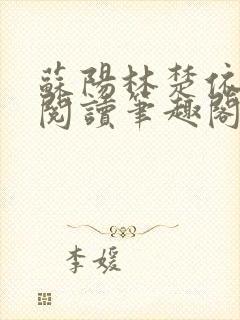 蘇陽林楚依
閱讀筆趣閣
李媛